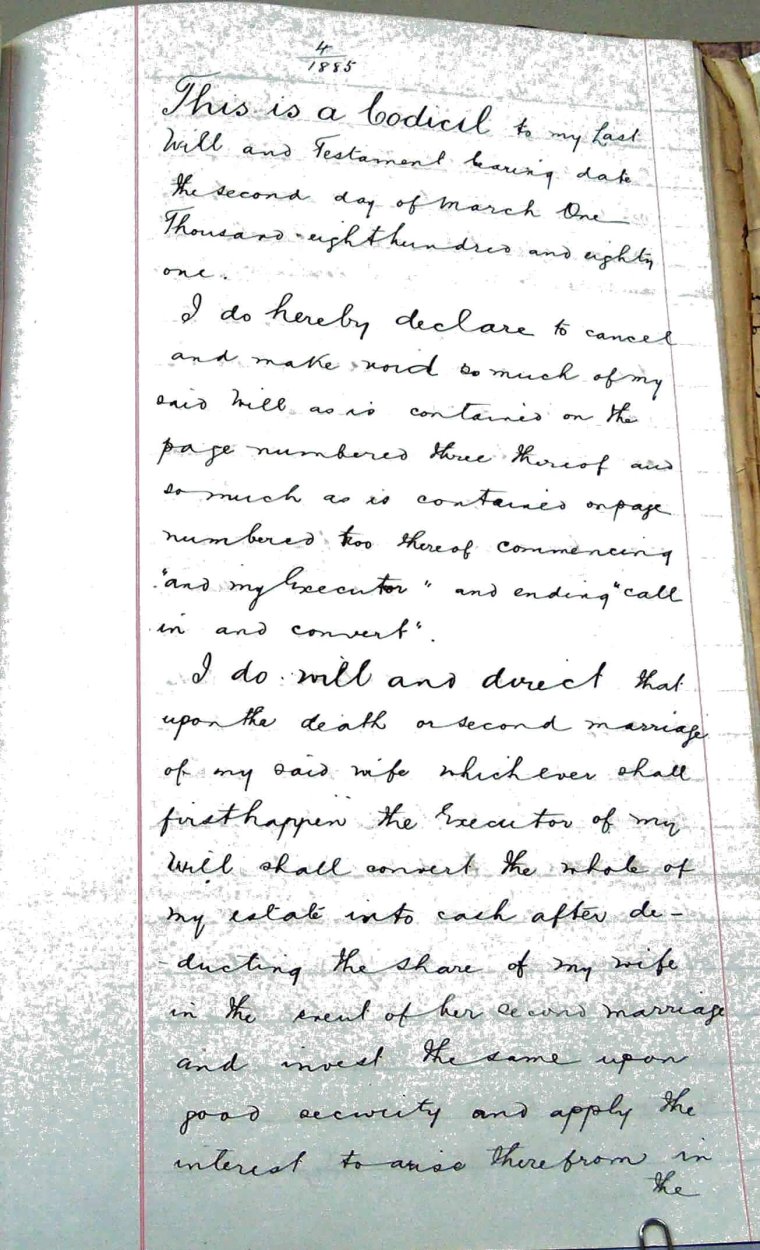 4
1885
This is a Codicil to my Last
Will and Testament bearing date
the second day of March One
Thousand eight hundred and eighty
one.
I do hereby declare to cancel
and make void so much of my
said Will as is contained on the
page numbered three thereof and
so much as is contained on page
numbered two thereof commencing
"and my Executor" and ending "call
in and convert".
I do will and direct that
upon the death or second marriage
of my said wife which ever shall
first happen the Executor of my
Will shall convert the whole of
my estate into cash after de-
ducting the share of my wife
in the event of her second marriage
and invest the same upon
good security and apply the
interest to arise therefrom in
the